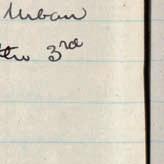 Urban
the 3rd